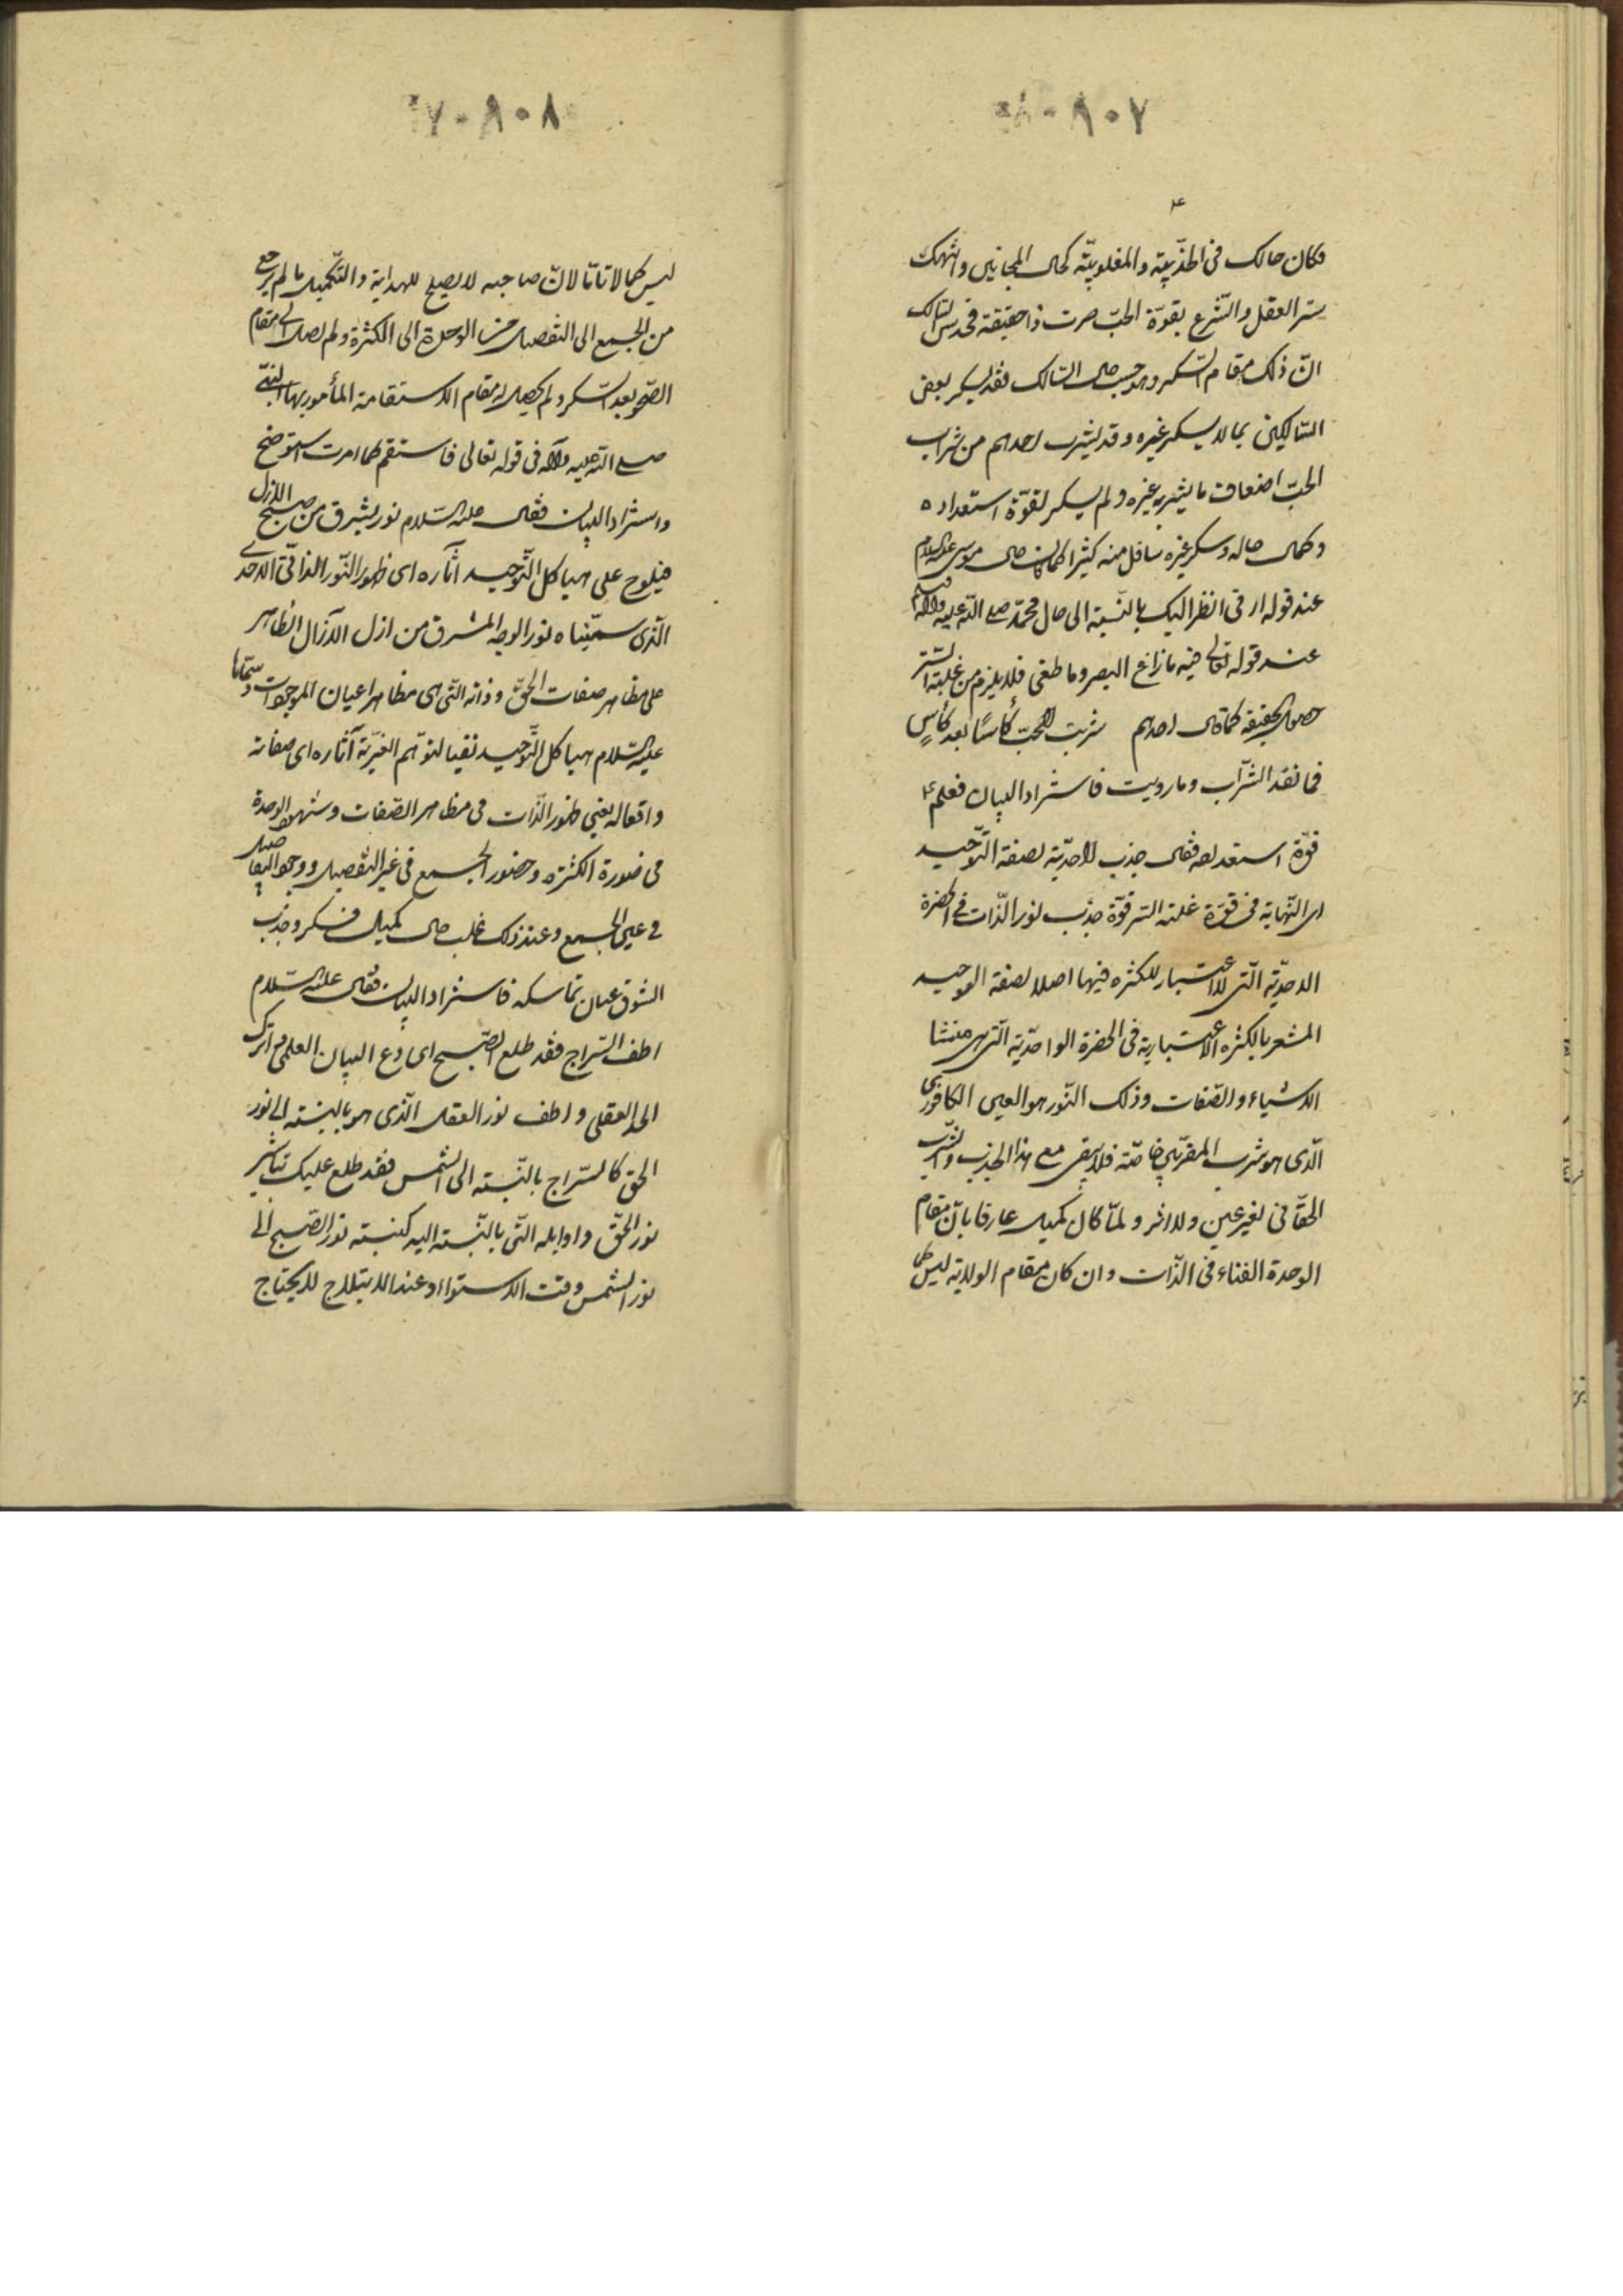 ٨٠٩٠٧
۴
فكان حالك في الجذبية والمغلوبية كحال المجانين وانتهك
ستر العقل والشرع بقوة الحب صرت ذا حقيقة فحدس السالك
ان ذلك مقام السكر وهو حسب حال السالك فقد يسكر بعض
السالكين بما لا يسكر غيره وقد يشرب احدهم من شراب
الحب اضعاف ما يشربه غيره ولم يسكر لقوة استعداده
وكمال حاله وسكر غيره باقل منه كثيرا كما كان حال موسى عليه السلام
عند قوله ارني انظر اليك بالنسبة الى حال محمد صلى الله عليه وآله وسلم
عند قوله تعالى فيه ما زاغ البصر وما طغى فلا يلزم من غلبة السر
حصول الحقيقة كما قال احدهم شربت الحب كأسًا بعد كأسٍ
فما نفد الشراب وما رويت فاستزاد البيان فعلم ۴
قوة استعداده فقال جذب الاحدية لصفة التوحيد
اى النهاية في قوة غلبة السر قوة جذب نور الذات في الحضرة
الاحدية التي لا اعتبار للكثرة فيها اصلا لصفة التوحيد
المشعر بالكثرة الاعتبارية في الحضرة الواحدية التي هي منشا
الاشياء والصفات وذلك النور هو العين الكافوري
الذي هو شرب المقربين خاصة فلا يبقى مع هذا الجذب والشرب
الحقاني لغير عين ولا اثر ولما كان كميل عارفا بان مقام
الوحدة الفناء في الذات وان كان مقام الولاية ليس كما
٧٠٩٠٨
ليس كمالا تاما لان صاحبه لا يصلح للهداية والتكميل ما لم يرجع
من الجمع الى التفصيل من الوحدة الى الكثرة ولم يصل الى مقام
الصحو بعد السكر ولم يحصل له مقام الاستقامة المأمور بها النبي
صلى الله عليه وآله في قوله تعالى فاستقم كما امرت استوضح
واستزاد البيان فقال عليه السلام نور يشرق من صبح الازل
فيلوح على هياكل التوحيد آثاره اى ظهور النور الذاتي الاحدي
الذي سميناه نور الوجه المشرق من ازل الآزال الظاهر
على مظاهر صفات الحق وذاته التي هى مظاهر اعيان الموجودات وسماها
عليه السلام هياكل التوحيد نفيا لتوهم الغيرية آثاره اى صفاته
وافعاله يعني ظهور الذات في مظاهر الصفات وشهود الوحدة
في صورة الكثرة وحضور الجمع في غير التفصيل ووجود التفاصيل
في عين الجمع وعند ذلك غلب حال كميل فسكر وجذب
الشوق عنان تماسكه فاستزاد البيان فقال عليه السلام
اطف السراج فقد طلع الصبح اى دع البيان العلمي واترك
الحد العقلي واطف نور العقل الذي هو بالنسبة الى نور
الحق كالسراج بالنسبة الى الشمس فقد طلع عليك تباشير
نور الحق واوايله التي بالنسبة اليه كنسبة نور الصبح الى
نور الشمس وقت الاستواء وعند الابتلاج لا يحتاج